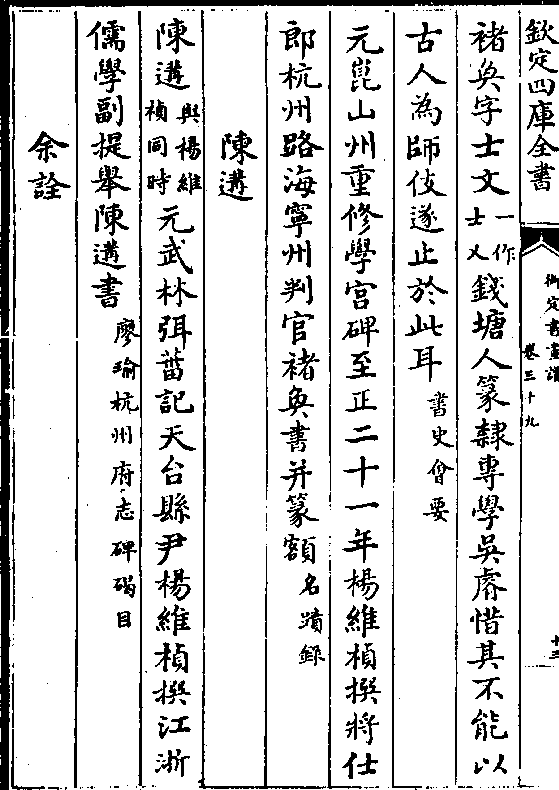 欽定四庫全書
御定書畫譜
卷三十九
十三
褚奐字士文一作士乂錢塘人篆隸專學吳睿惜其不能以
古人為師伎遂止於此耳書史會要
元崑山州重修學宮碑至正二十一年楊維楨撰將仕
郎杭州路海寧州判官褚奐書并篆額名蹟錄
陳遘
陳遘與楊維楨同時元武林弭菑記天台縣尹楊維楨撰江浙
儒學副提舉陳遘書廖瑜杭州府志碑碣目
余詮